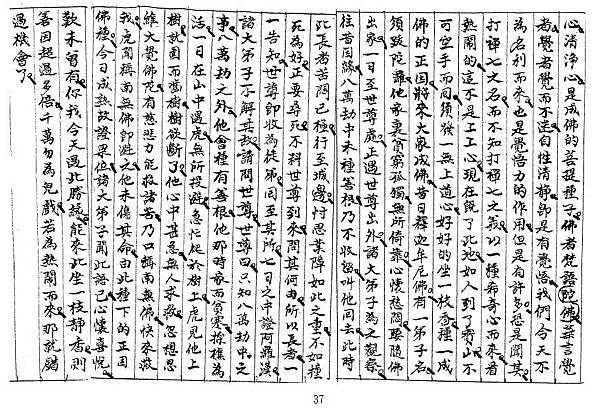 心清淨心是成佛的菩提種子佛者梵語陀佛華言覺
者覺者覺而不迷自性清靜即是有覺悟我們今天不
為名利而來也是覺悟力的作用但是有許多恐是聞其
打禪七之名而不知打禪七之義以一種奇心而來看
熱鬧的這不是上上心現在既了此地如人到了寶山不
可空手而回須發一無上道心好好的坐一枝香種一成
佛的正因將來大家成佛昔日釋迦牟尼佛有一弟子名
須跋陀羅他家裏貧窮孤獨無所倚靠心懷愁悶要隨佛
出家一日至世尊處正遇世尊出外諸大弟子為之觀察
往昔因緣八萬劫中未種善根乃不收留叫他回去此時
此長者苦悶已極行至城邊忖思業障如此之重不如撞
死為好正要尋死不料世尊到來問其何由所以長者一
一告知世尊即收為徒弟同至其所七日之中證阿羅漢
諸大弟子不解其故請問世尊世尊曰只知八萬劫中之
事八萬劫之外他曾種有善根他那時家而貧寒採樵為
活一日在山中遇虎無所投避急忙從於樹上虎見他上
樹就圍而嚙樹樹欲斷了他心中甚急無人求救忽想思
維大覺佛陀有慈悲力能救諸苦乃口稱南無佛快來救
我虎聞稱南無佛即避之他未傷其命由此種下的正因
佛種今日成熟故證果但諸大弟子聞此語已心懷喜悅
歎未曾有你我今天遇此勝緣能來此坐一枝靜香則
善因超過多倍千萬勿為兒戲若為熱鬧而來那就錯
過機會了
37